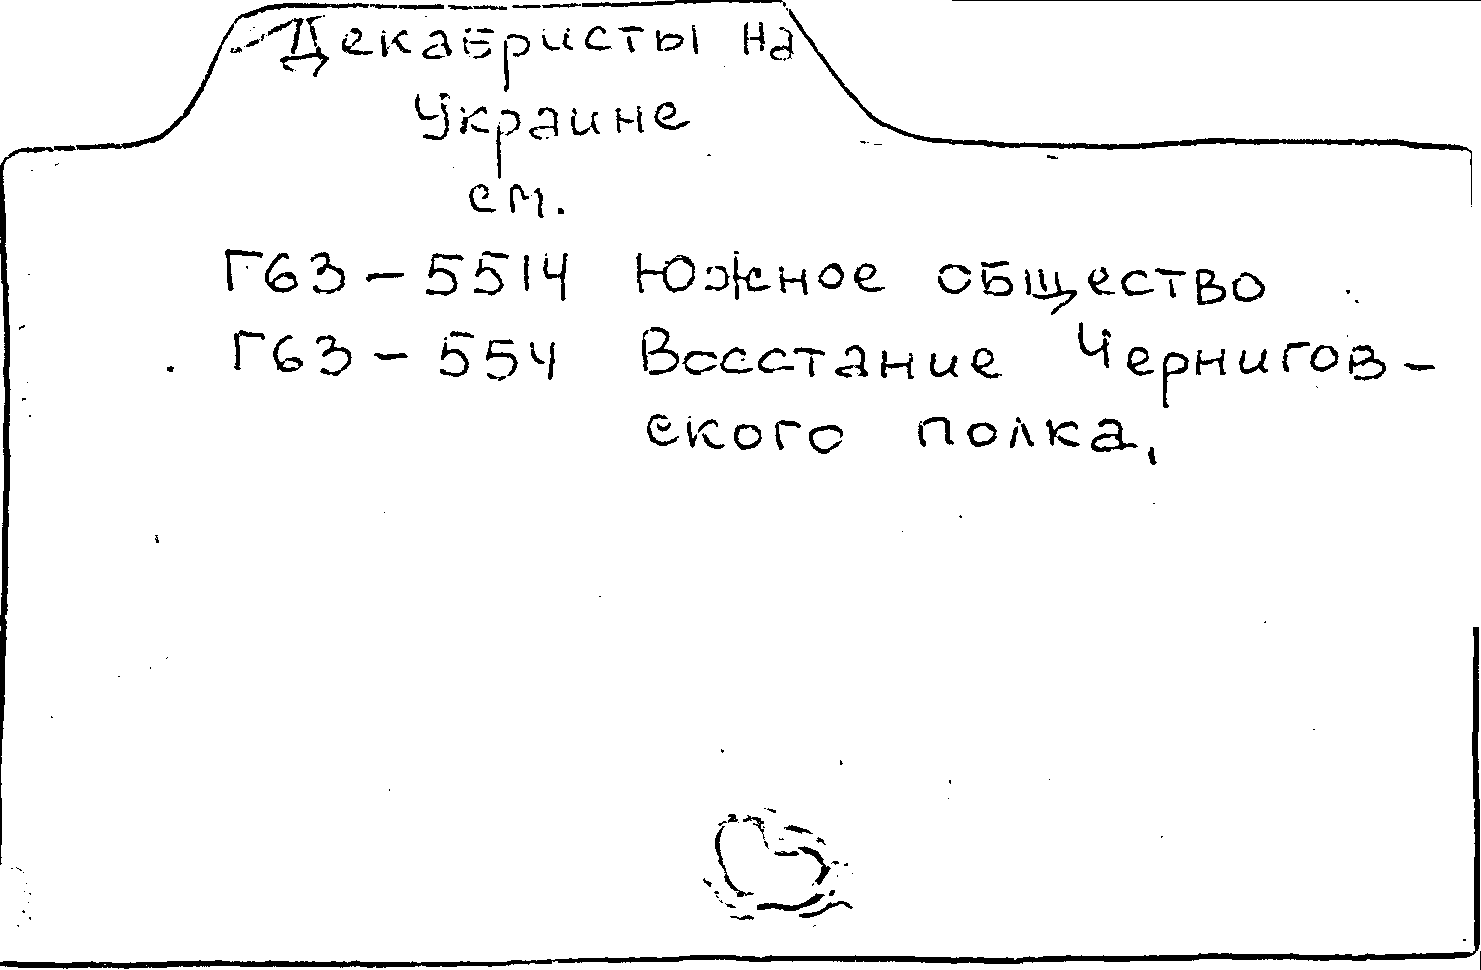 Декабристы на
Украине
см.
Г63-5514 Южное общество
Г63-554 Восстание Чернигов-
ского полка.